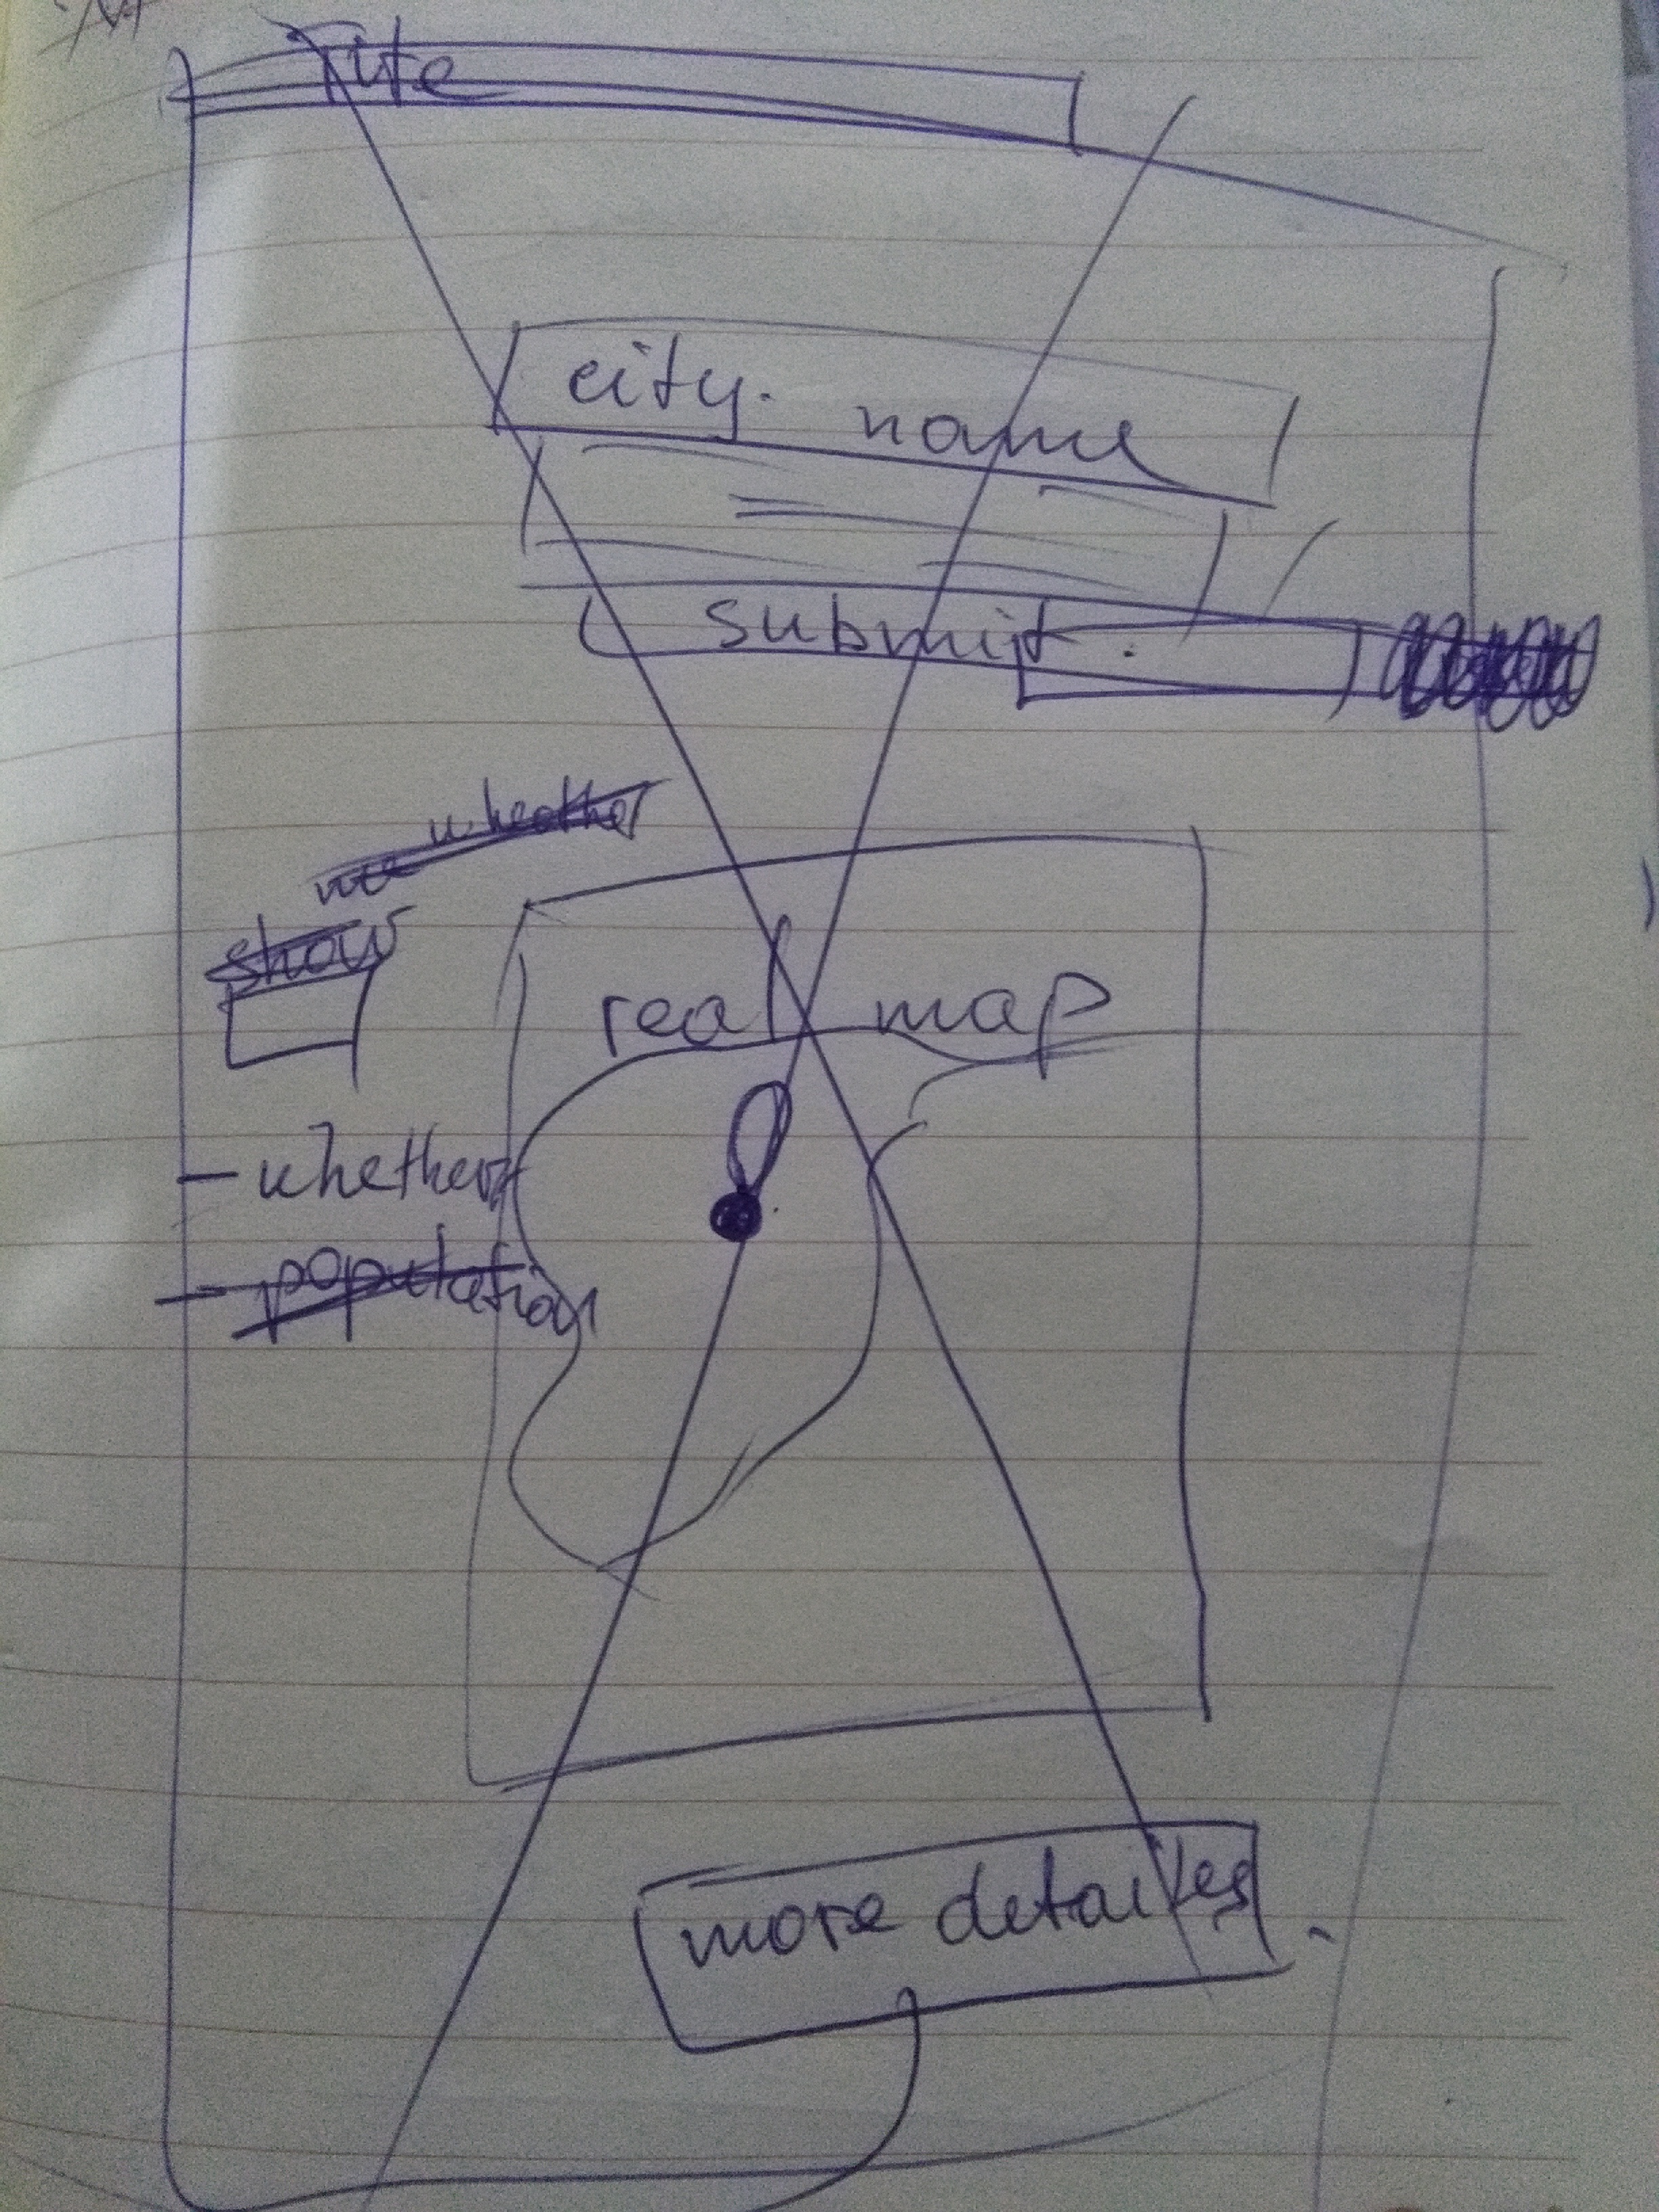 Title
city. name
submit.
wheather
me
show
real map
- whether
- population
more detailes